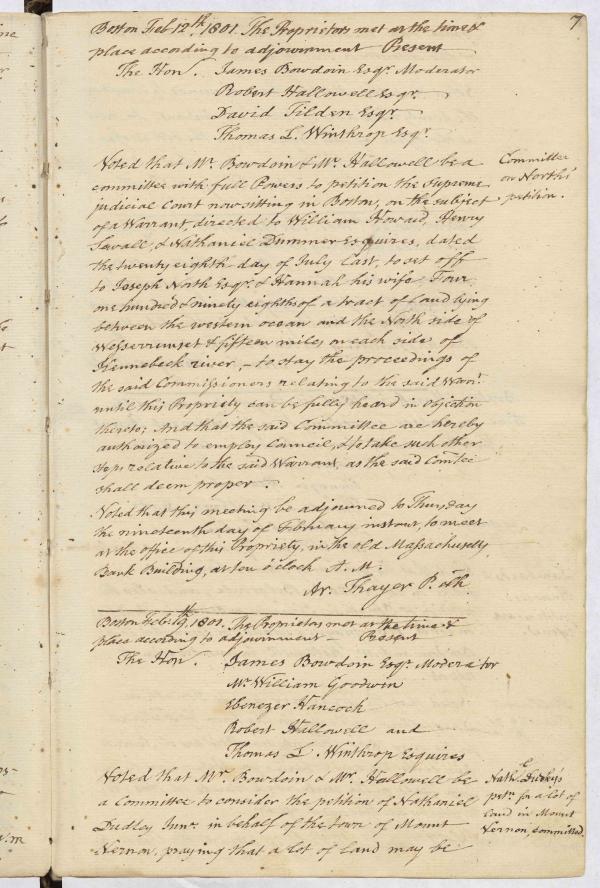 7
Boston Feb 12th, 1801. The Proprietors met at the time &
place according to adjournment Present
The Hon. James Bowdoin Esqr. Moderator
Robert Hallowell Esqr.
David Tilden Esqr.
Thomas L. Winthrop Esqr.
Voted that Mr. Bowdoin & Mr. Hallowell be a
Committee
committee with full Powers to petition the Supreme
on North's
judicial Court now sitting in Boston, on the subject
petition.
of a Warrant directed to William Howard, Henry
Savall, & Nathaniel Dummer Esquires, dated
the twenty eighth day of July last, to set off
to Joseph North Esqr. & Hannah his wife Four
one hundred & ninety eighths of a tract of land lying
between the western ocean and the North side of
Wesserrunset & fifteen miles on each side of
Kennebeck river, – to stay the proceedings of
the said Commissioners relating to the said Warrt.
until this Propriety can be fully heard in objection
thereto; And that the said Committee are hereby
authorized to employ Council, & to take such other
steps relative to the said Warrant, as the said Comtee
shall deem proper.
Voted that this meeting be adjourned to Thursday
the nineteenth day of February instant, to meet
at the office of this Propriety, in the old Massachusetts
Bank Building, at ten o'clock A.M.
Ar. Thayer P. Clk.
Boston Feb 19th, 1801. The Proprietors met at the time &
place according to adjournment – Present
The Hon. James Bowdoin Esqr. Moderator
Mr. William Goodwin
Ebenezer Hancock
Robert Hallowell and
Thomas L Winthrop Esquires
Voted that Mr. Bowdoin & Mr. Hallowell be
Nathl
a Committee to consider the petition of Nathaniel
petn. for a lot of
Dudley Junr. in behalf of the town of Mount
land in Mount
Vernon, committed.
Vernon, praying that a lot of land may be